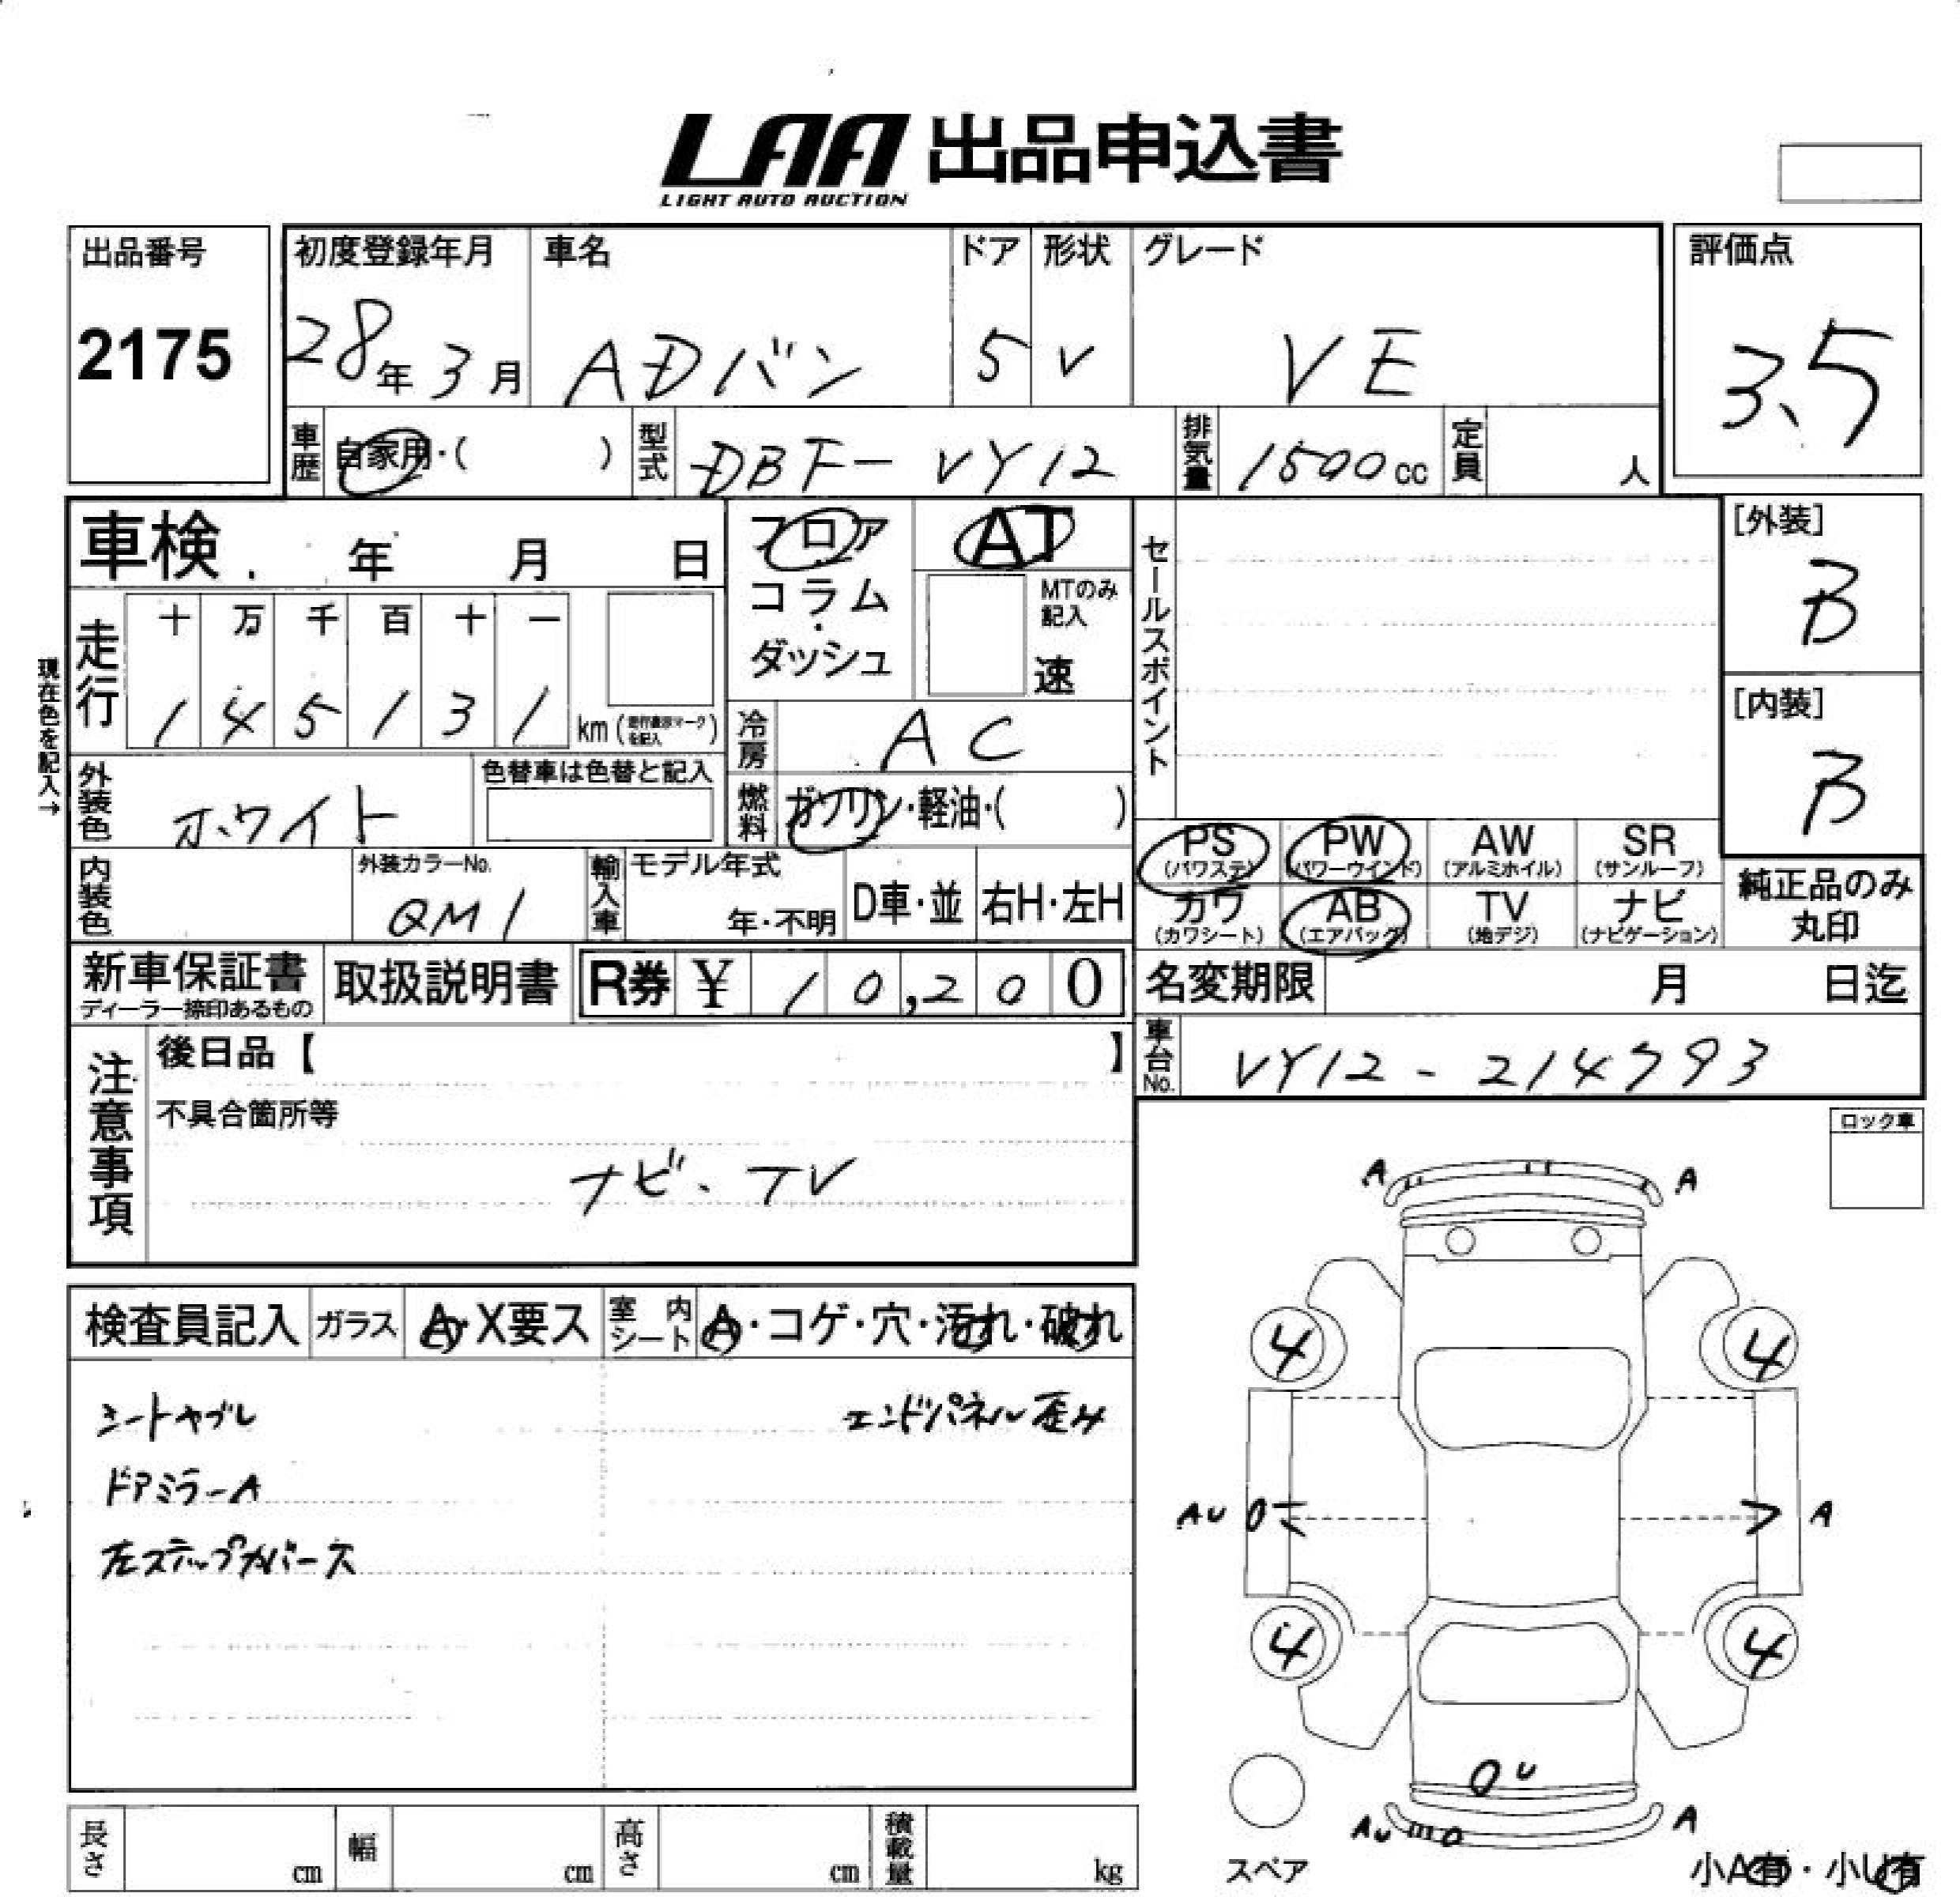 LAA 出品申込書
LIGHT AUTO AUCTION
出品番号
2175
初度登録年月
28年3月
車名
ADバン
ドア
5
形状
V
グレード
VE
評価点
3.5
車歴
自家用・( )
型式
DBF-VY12
排気量
1500cc
定員
人
車検 年 月 日
フロア
コラム
・
ダッシュ
AT
MTのみ
記入
速
セールスポイント
[外装]
B
現在色を記入→
走行
十 万 千 百 十 一
1 4 5 1 3 1 km(走行表示マークを記入)
冷房
AC
[内装]
B
外装色
ホワイト
色替車は色替と記入
燃料
ガソリン・軽油・( )
PS
(パワステ)
PW
(パワーウインド)
AW
(アルミホイル)
SR
(サンルーフ)
内装色
外装カラーNo.
QM1
輸入車
モデル年式
年・不明
D車・並
右H・左H
カワ
(カワシート)
AB
(エアバッグ)
TV
(地デジ)
ナビ
(ナビゲーション)
純正品のみ
丸印
新車保証書
ディーラー捺印あるもの
取扱説明書
R券 ¥ 10,200
名変期限 月 日迄
注意事項
後日品【 】
車台No.
VY12-214793
不具合箇所等
ナビ、TV
ロック車
A A
検査員記入
ガラス
A・X要ス
室内シート
A・コゲ・穴・汚れ・破れ
4 4
シートヤブレ
エンドパネル歪み
ドアミラーA
AU A
左ステップカバー欠
4 4
U
AU A
長さ
cm
幅
cm
高さ
cm
積載量
kg
スペア
小A有・小U有